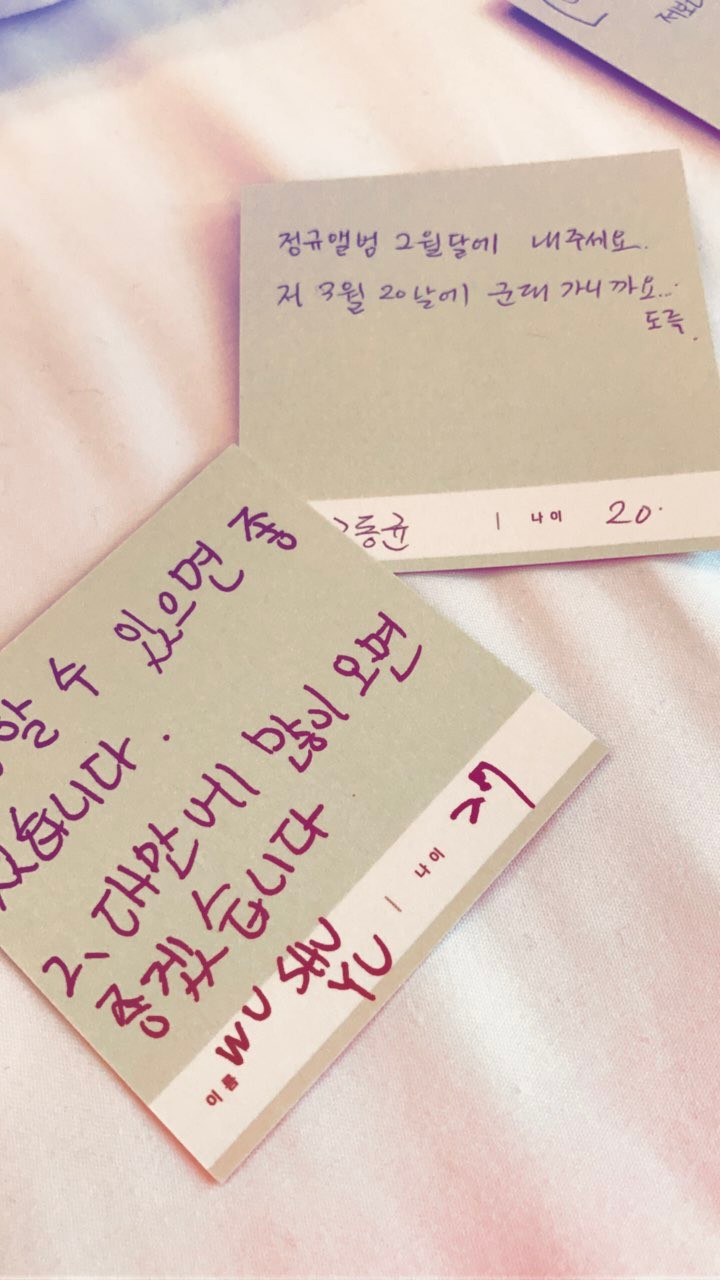 정규앨범 2월달에 내주세요..
저 3월 20날에 군대 가니까요...
도륵.
동균 | 나이 20.
할 수 있으면 좋
겠습니다.
2、대만에 많이 오면
좋겠습니다
이름 WU SHU YU | 나이 27